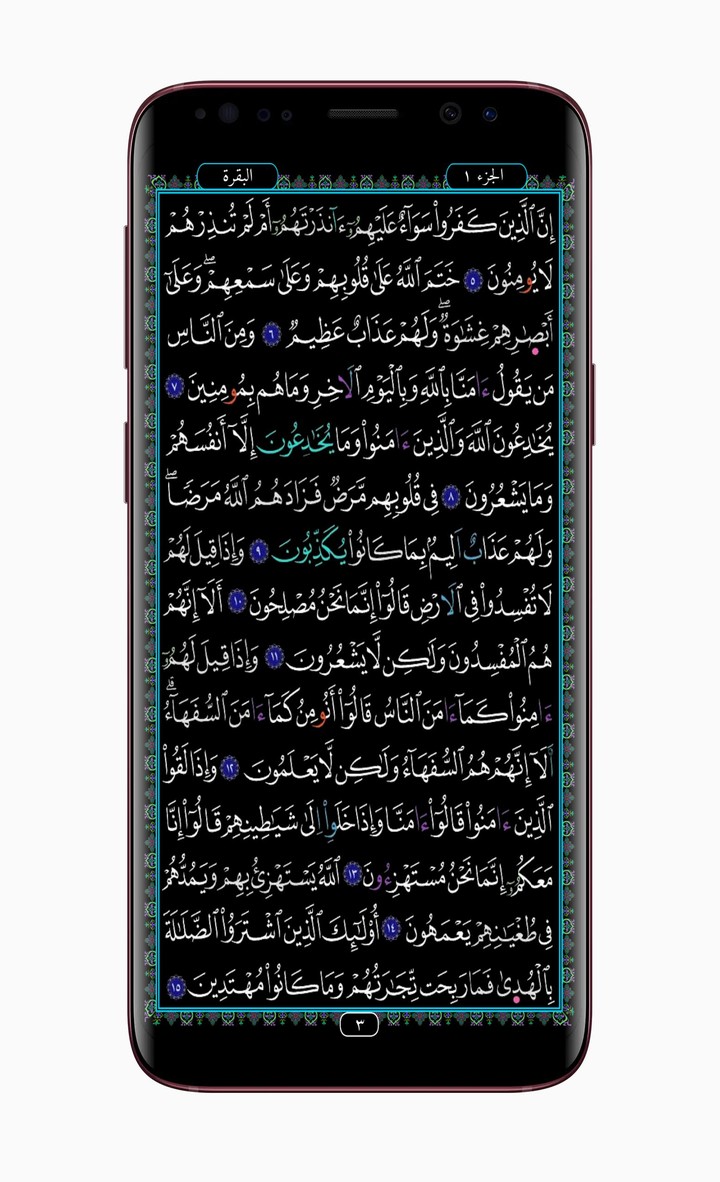 الجزء ١
البقرة
إِنَّ ٱلَّذِينَ كَفَرُواْ سَوَآءٌ عَلَيْهِمُۥٓ ءَآنذَرْتَهُمُۥٓ أَمْ لَمْ تُنذِرْهُمْ
لَا يُومِنُونَ ٥ خَتَمَ ٱللَّهُ عَلَىٰ قُلُوبِهِمْ وَعَلَىٰ سَمْعِهِمْۖ وَعَلَىٰٓ
أَبْصَٰرِهِمْ غِشَٰوَةٌۖ وَلَهُمْ عَذَابٌ عَظِيمٌ ٦ وَمِنَ ٱلنَّاسِ
مَن يَقُولُ ءَامَنَّا بِٱللَّهِ وَبِٱلْيَوْمِ ٱلَاخِرِ وَمَا هُم بِمُومِنِينَ ٧
يُخَٰدِعُونَ ٱللَّهَ وَٱلَّذِينَ ءَامَنُواْ وَمَا يُخَٰدِعُونَ إِلَّآ أَنفُسَهُمْ
وَمَا يَشْعُرُونَ ٨ فِى قُلُوبِهِم مَّرَضٌ فَزَادَهُمُ ٱللَّهُ مَرَضٗاۖ
وَلَهُمْ عَذَابٌ اَلِيمٌۢ بِمَا كَانُواْ يُكَذِّبُونَ ٩ وَإِذَا قِيلَ لَهُمْ
لَا تُفْسِدُواْ فِى ٱلَارْضِ قَالُوٓاْ إِنَّمَا نَحْنُ مُصْلِحُونَ ١٠ أَلَآ إِنَّهُمْ
هُمُ ٱلْمُفْسِدُونَ وَلَٰكِن لَّا يَشْعُرُونَ ١١ وَإِذَا قِيلَ لَهُمُۥٓ
ءَامِنُواْ كَمَآ ءَامَنَ ٱلنَّاسُ قَالُوٓاْ أَنُومِنُ كَمَآ ءَامَنَ ٱلسُّفَهَآءُۗ
أَلَآ إِنَّهُمْ هُمُ ٱلسُّفَهَآءُ وَلَٰكِن لَّا يَعْلَمُونَ ١٢ وَإِذَا لَقُواْ
ٱلَّذِينَ ءَامَنُواْ قَالُوٓاْ ءَامَنَّا وَإِذَا خَلَوِاْ اِلَىٰ شَيَٰطِينِهِمْ قَالُوٓاْ إِنَّا
مَعَكُمُۥٓ إِنَّمَا نَحْنُ مُسْتَهْزِءُونَ ١٣ ٱللَّهُ يَسْتَهْزِئُ بِهِمْ وَيَمُدُّهُمْ
فِى طُغْيَٰنِهِمْ يَعْمَهُونَ ١٤ أُوْلَٰٓئِكَ ٱلَّذِينَ ٱشْتَرَوُاْ ٱلضَّلَٰلَةَ
بِٱلْهُدَىٰ فَمَا رَبِحَت تِّجَٰرَتُهُمْ وَمَا كَانُواْ مُهْتَدِينَ ١٥
٣